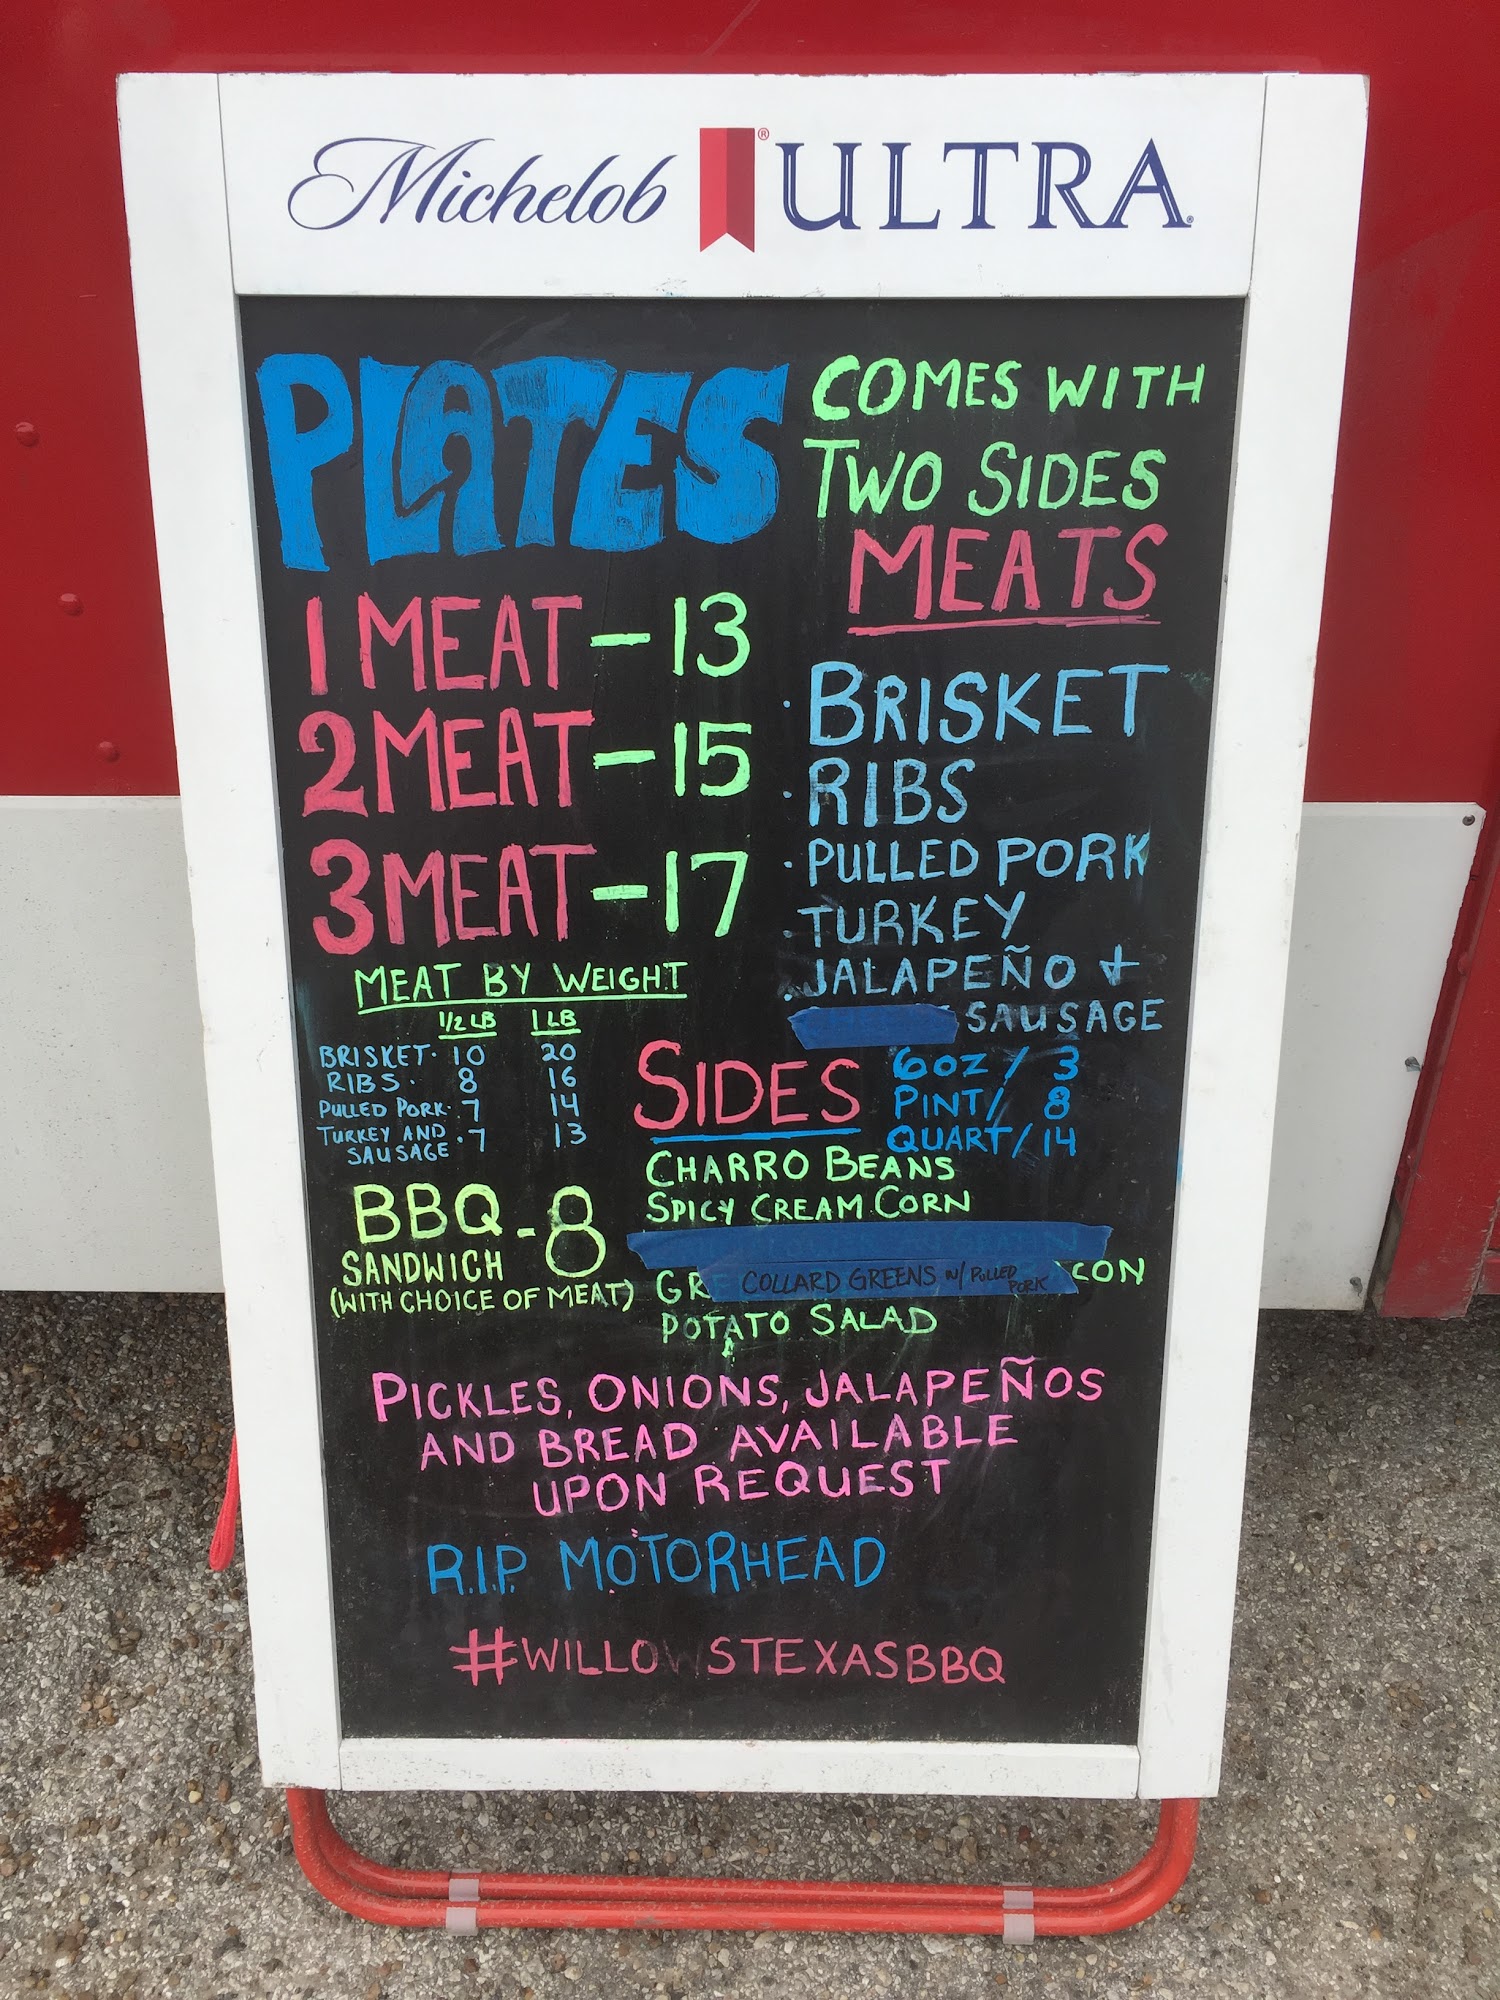 Michelob ULTRA
PLATES
COMES WITH
TWO SIDES
1 MEAT - 13
2 MEAT - 15
3 MEAT - 17
MEATS
· BRISKET
· RIBS
· PULLED PORK
· TURKEY
· JALAPEÑO +
SAUSAGE
MEAT BY WEIGHT
1/2 LB 1 LB
BRISKET · 10 20
RIBS · 8 16
PULLED PORK · 7 14
TURKEY AND
SAUSAGE · 7 13
BBQ - 8
SANDWICH
(WITH CHOICE OF MEAT)
SIDES
6oz / 3
PINT / 8
QUART / 14
CHARRO BEANS
SPICY CREAM CORN
COLLARD GREENS W/ PULLED PORK
POTATO SALAD
PICKLES, ONIONS, JALAPEÑOS
AND BREAD AVAILABLE
UPON REQUEST
R.I.P. MOTORHEAD
#WILLOWSTEXASBBQ